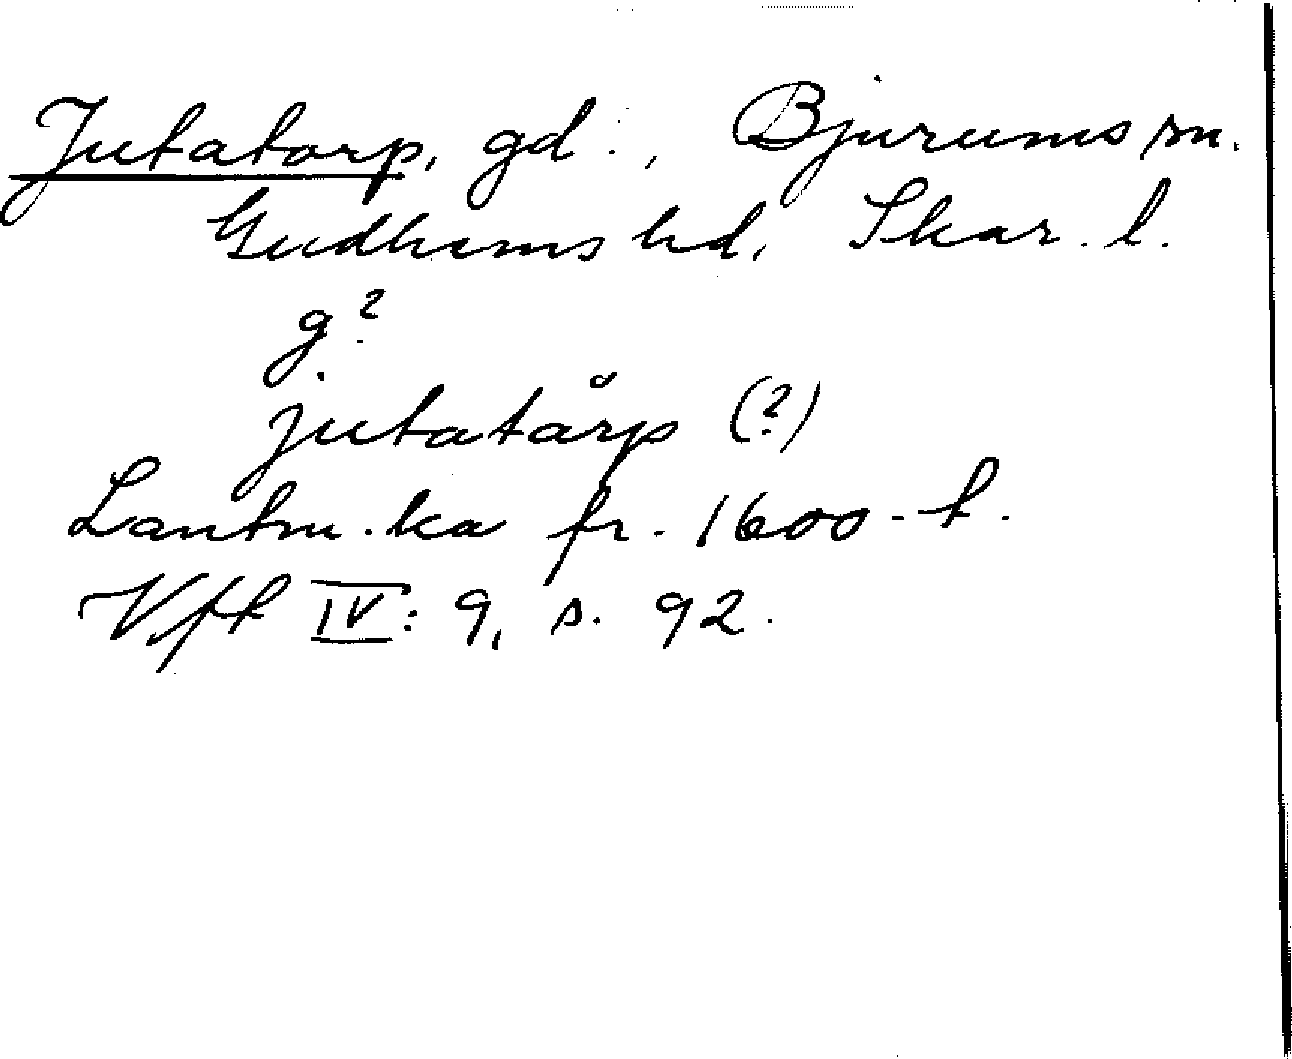 Jutatorp, gd., Bjurums sn.
Gudhems hd, Skar. l.
g?
jutatårp (?)
Lantm. ka fr. 1600-t.
Vft IV: 9, s. 92.